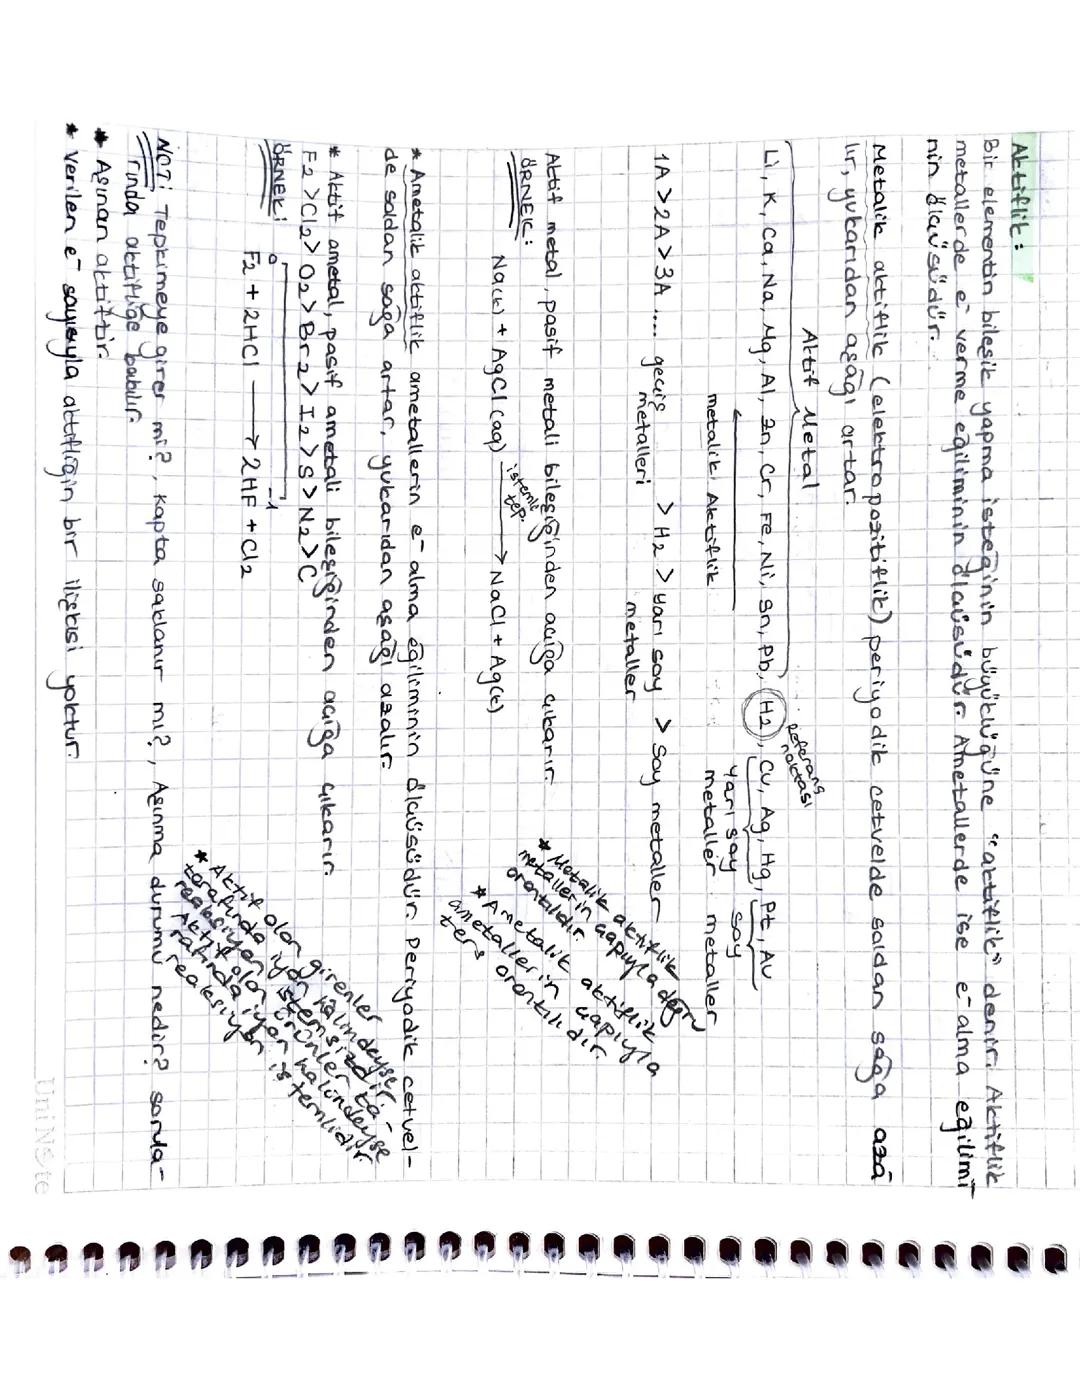 Aktiflik:
Bir elementin bileşik yapma isteğinin büyüklüğüne "aktiflik" denir. Aktiflik
metallerde e⁻ verme eğiliminin ölçüsüdür. Ametallerde ise e⁻ alma eğilimi
nin ölçüsüdür.
Metalik aktiflik (elektropozitiflik) periyodik cetvelde soldan sağa aza
lır, yukarıdan aşağı artar.
Aktif Metal
referans noktası
Li, K, Ca, Na, Mg, Al, Zn, Cr, Fe, Ni, Sn, Pb, H2, Cu, Ag, Hg, Pt, Au
metalik Aktiflik
yarı soy metaller
soy metaller
1A > 2A > 3A .... geçiş metalleri > H2 > yarı soy metaller > Soy metaller
Aktif metal, pasif metali bileşiğinden açığa çıkarır.
ÖRNEK:
Na(k) + AgCl(aq) istemli tep. → NaCl + Ag(k)
* Metalik aktiflik
metallerin çapıyla doğru
orantılıdır.
* Ametalik aktiflik
ametallerin çapıyla
ters orantılıdır.
* Ametalik aktiflik ametallerin e⁻ alma eğiliminin ölçüsüdür. Periyodik cetvel-
de soldan sağa artar, yukarıdan aşağı azalır.
* Aktif ametal, pasif ametali bileşiğinden açığa çıkarır.
F2 > Cl2 > O2 > Br2 > I2 > S > N2 > C
ÖRNEK:
0 -1
F2 + 2HCl → 2HF + Cl2
* Aktif olan girenler
tarafında iyon hâlindeyse
reaksiyon istemsizdir.
Aktif olan ürünler ta-
rafında iyon halindeyse
reaksiyon istemlidir.
NOT: Tepkimeye girer mi?, Kapta saklanır mı?, Aşınma durumu nedir? sorula-
rında aktifliğe bakılır.
* Aşınan aktiftir.
* Verilen e⁻ sayısıyla aktifliğin bir ilişkisi yoktur.
UniNote